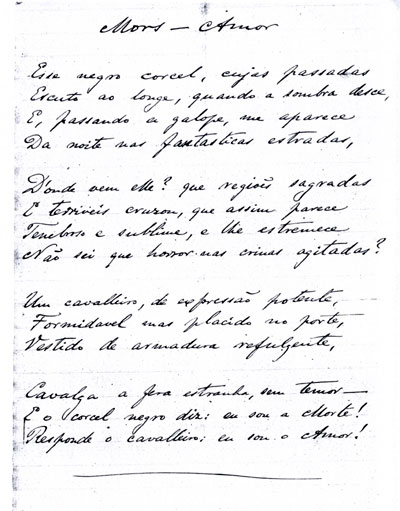 Mors — Amor
Esse negro corcel, cujas passadas
Escuto ao longe, quando a sombra desce,
E, passando a galope, me aparece
Da noite nas fantasticas estradas,
D'onde vem elle? que regiões sagradas
E terriveis cruzou, que assim parece
Tenebroso e sublime, e lhe estremece
Não sei que horror nas crinas agitadas?
Um cavalleiro, de expressão potente,
Formidavel mas placido no porte,
Vestido de armadura refulgente,
Cavalga a fera estranha, sem temor —
E o corcel negro diz: eu sou a Morte!
Responde o cavalleiro: eu sou o Amor!